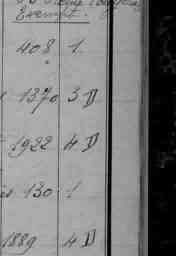 Exempt.
408 1.
1370 3 D
1922 4 D
130 1
1889 4 D